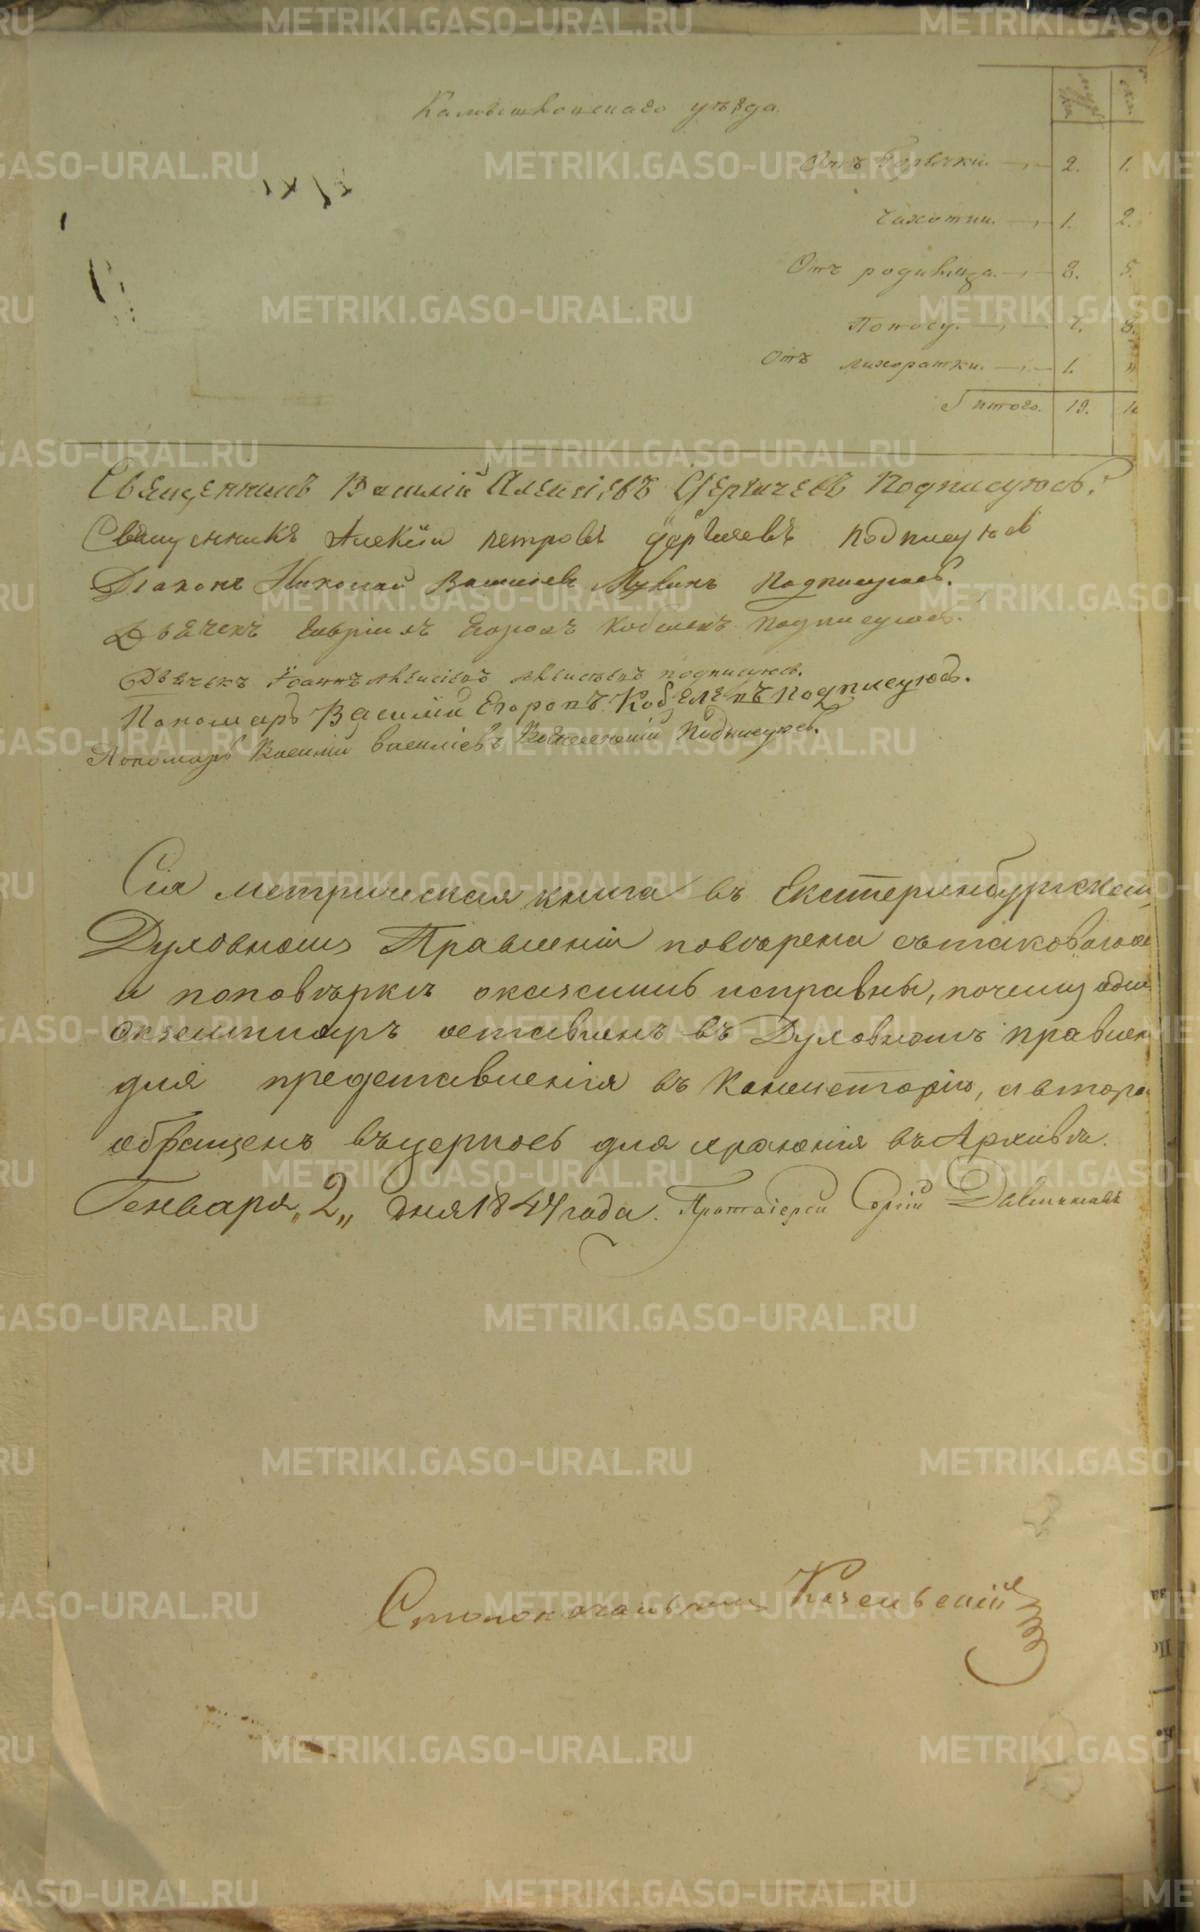 Камышловскаго уѣзда.
Отъ Горячки. 2. 1.
Чахотки. 1. 2.
Отъ родимца. 8. 5.
Поносу. 7. 8.
Отъ лихоратки. 1. "
Итого. 19. 1
Священникъ Василій Алексіевъ Подписуюсь.
Священникъ Алексій петровъ подписуюсь
Діаконъ Николай Васильевъ Подписуюсь.
Дьячекъ Гавріилъ Егоровъ Кобелевъ подписуюсь.
Дьячекъ Іоаннъ подписуюсь.
Пономарь Василий Егоровъ Кобелевъ Подписуюсь.
Пономарь Василий Василіевъ Подписуюсь.
Сія метрическая книга въ Екатеринбургском
Духовномъ Правленіи повѣрена
и по повѣркѣ оказались исправны, почему один
экземпляръ оставленъ въ Духовномъ правлен
для представленія въ Консисторію, а второ
обращенъ въ церковь для храненія въ Архивѣ.
Генваря „2„ дня 1847 года. Протоіерей Сергій
Столоначальникъ
METRIKI.GASO-URAL.RU